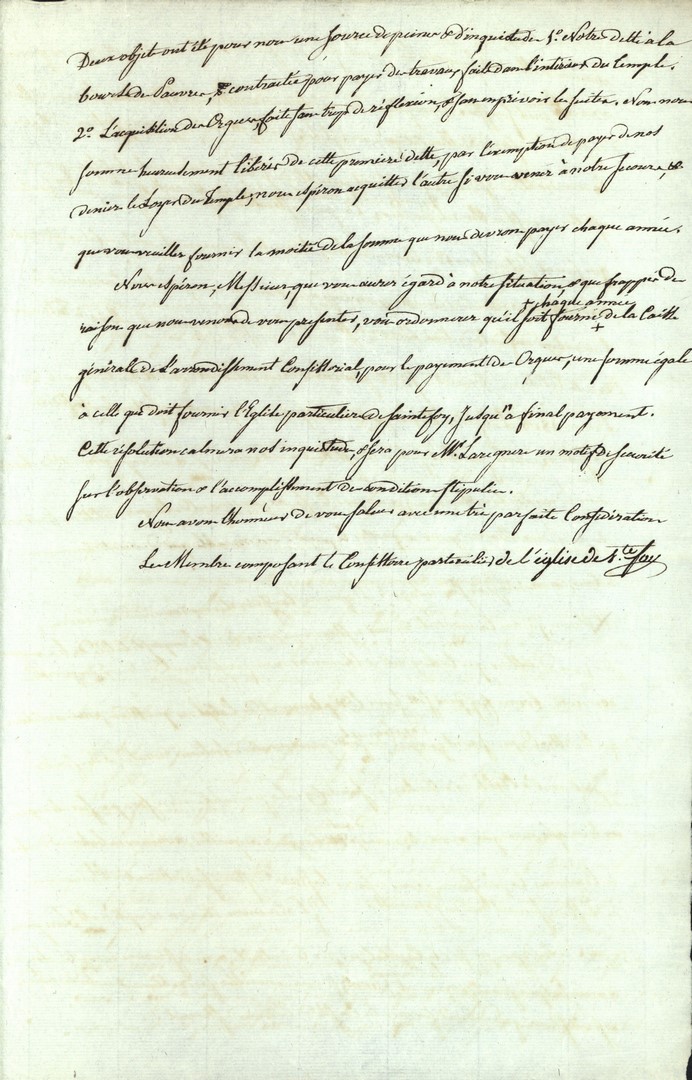 Deux objets ont été pour nous une source de peines & d'inquietudes 1.º Notre dette à la
bourse des Pauvres, & contractée pour payer des travaux faits dans l'intérieur du Temple.
2.º L'acquisition des Orgues, faite sans trop de réflexion, & sans en prévoir les suites. Nous nous
sommes heureusement libérés de cette première dette, par l'exemption de payer de nos
deniers le Loyer du Temple; nous espérons acquitter l'autre si vous venez à notre secours, &
que vous veuilliez fournir la moitié de la somme que nous devrons payer chaque année.
Nous espérons, Messieurs, que vous aurez égard à notre situation & que frappés des
raisons que nous venons de vous présenter, vous ordonnerez qu'il soit fourni + chaque année + de la Caisse
générale de L'arrondissement Consistorial, pour le payement des Orgues, une somme égale
à celle que doit fournir l'Eglise particulière de Sainte foy, Jusqu'à final payement.
Cette résolution calmera nos inquiétudes, & sera pour Mr. Laregnere un motif de sécurité
sur l'observation & l'accomplissement des conditions stipulées.
Nous avons l'honneur de vous saluer avec une très parfaite Considération
Les Membres composant le Consistoire particulier de l'église de S.te foy